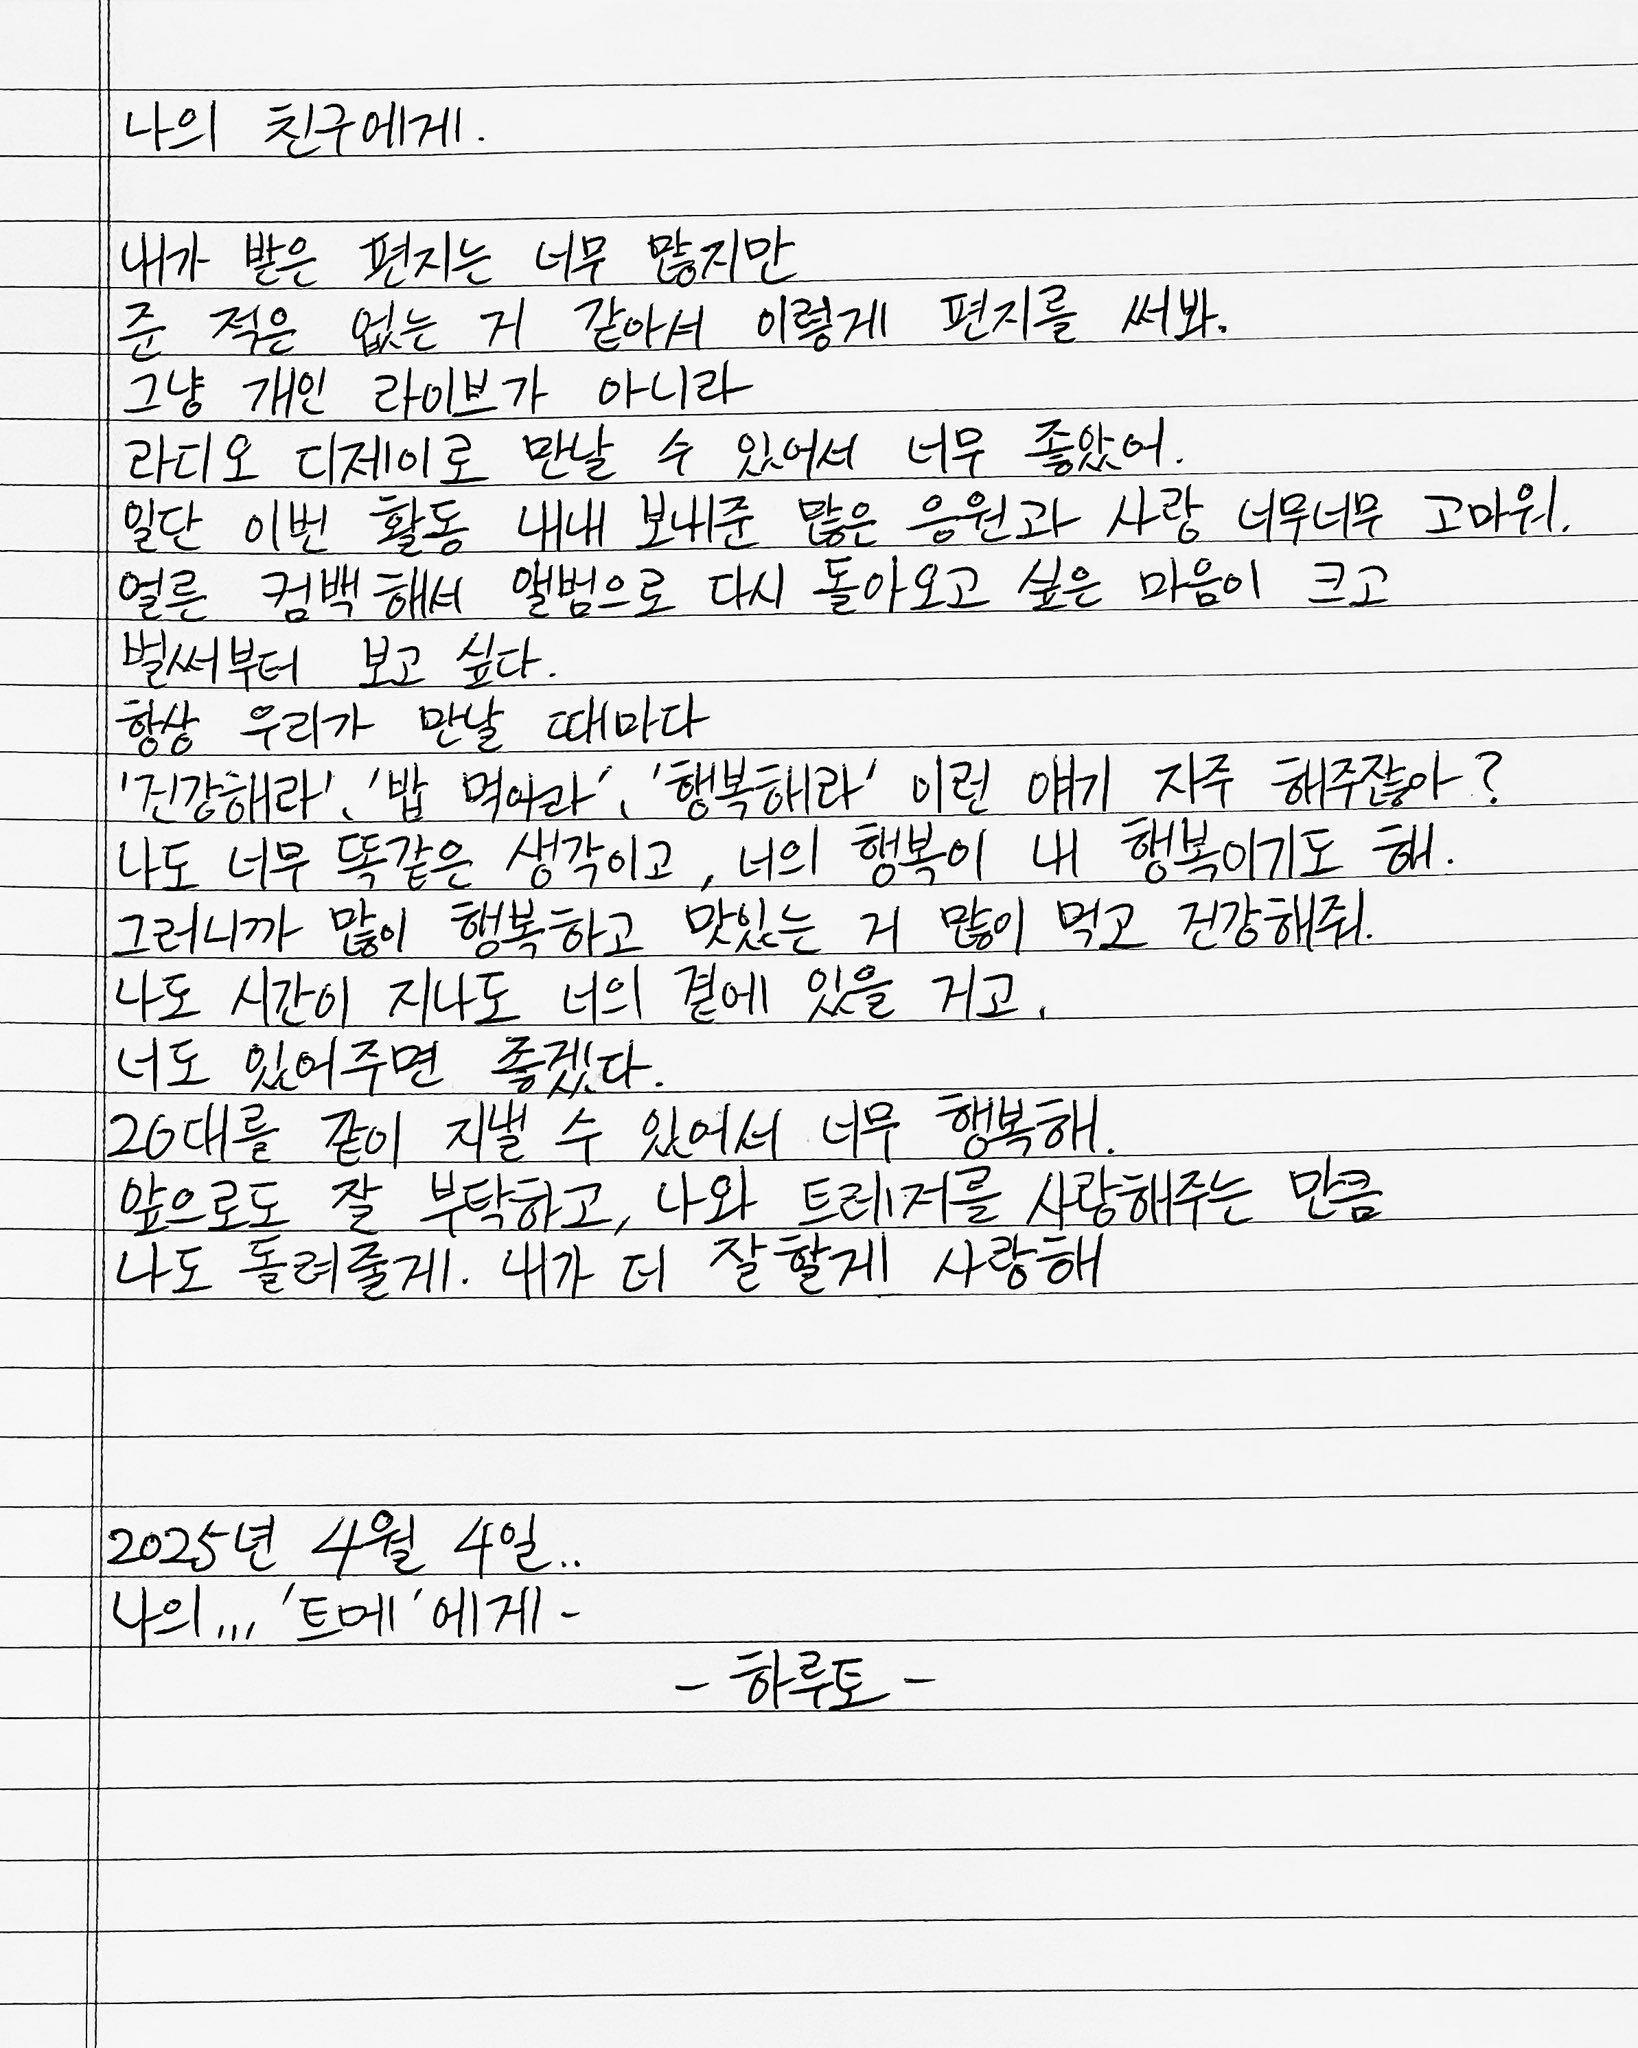 나의 친구에게.
내가 받은 편지는 너무 많지만
준 적은 없는 거 같아서 이렇게 편지를 써봐.
그냥 개인 라이브가 아니라
라디오 디제이로 만날 수 있어서 너무 좋았어.
일단 이번 활동 내내 보내준 많은 응원과 사랑 너무너무 고마워.
얼른 컴백해서 앨범으로 다시 돌아오고 싶은 마음이 크고
벌써부터 보고 싶다.
항상 우리가 만날 때마다
'건강해라', '밥 먹어라', '행복해라' 이런 얘기 자주 해주잖아?
나도 너무 똑같은 생각이고, 너의 행복이 내 행복이기도 해.
그러니까 많이 행복하고 맛있는 거 많이 먹고 건강해줘.
나도 시간이 지나도 너의 곁에 있을 거고,
너도 있어주면 좋겠다.
20대를 같이 지낼 수 있어서 너무 행복해.
앞으로도 잘 부탁하고, 나와 트레저를 사랑해주는 만큼
나도 돌려줄게. 내가 더 잘할게 사랑해
2025년 4월 4일..
나의,,, '트메'에게-
- 하루토 -